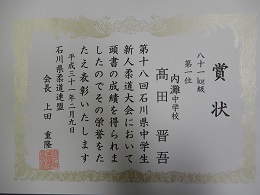 賞状
八十一kg級
第一位
内灘中学校
髙田晋吾
第十八回石川県中学生
新人柔道大会において
頭書の成績を得られま
したのでその栄誉をた
たえ表彰いたします
平成三十一年二月九日
石川県柔道連盟
会長 上田重隆